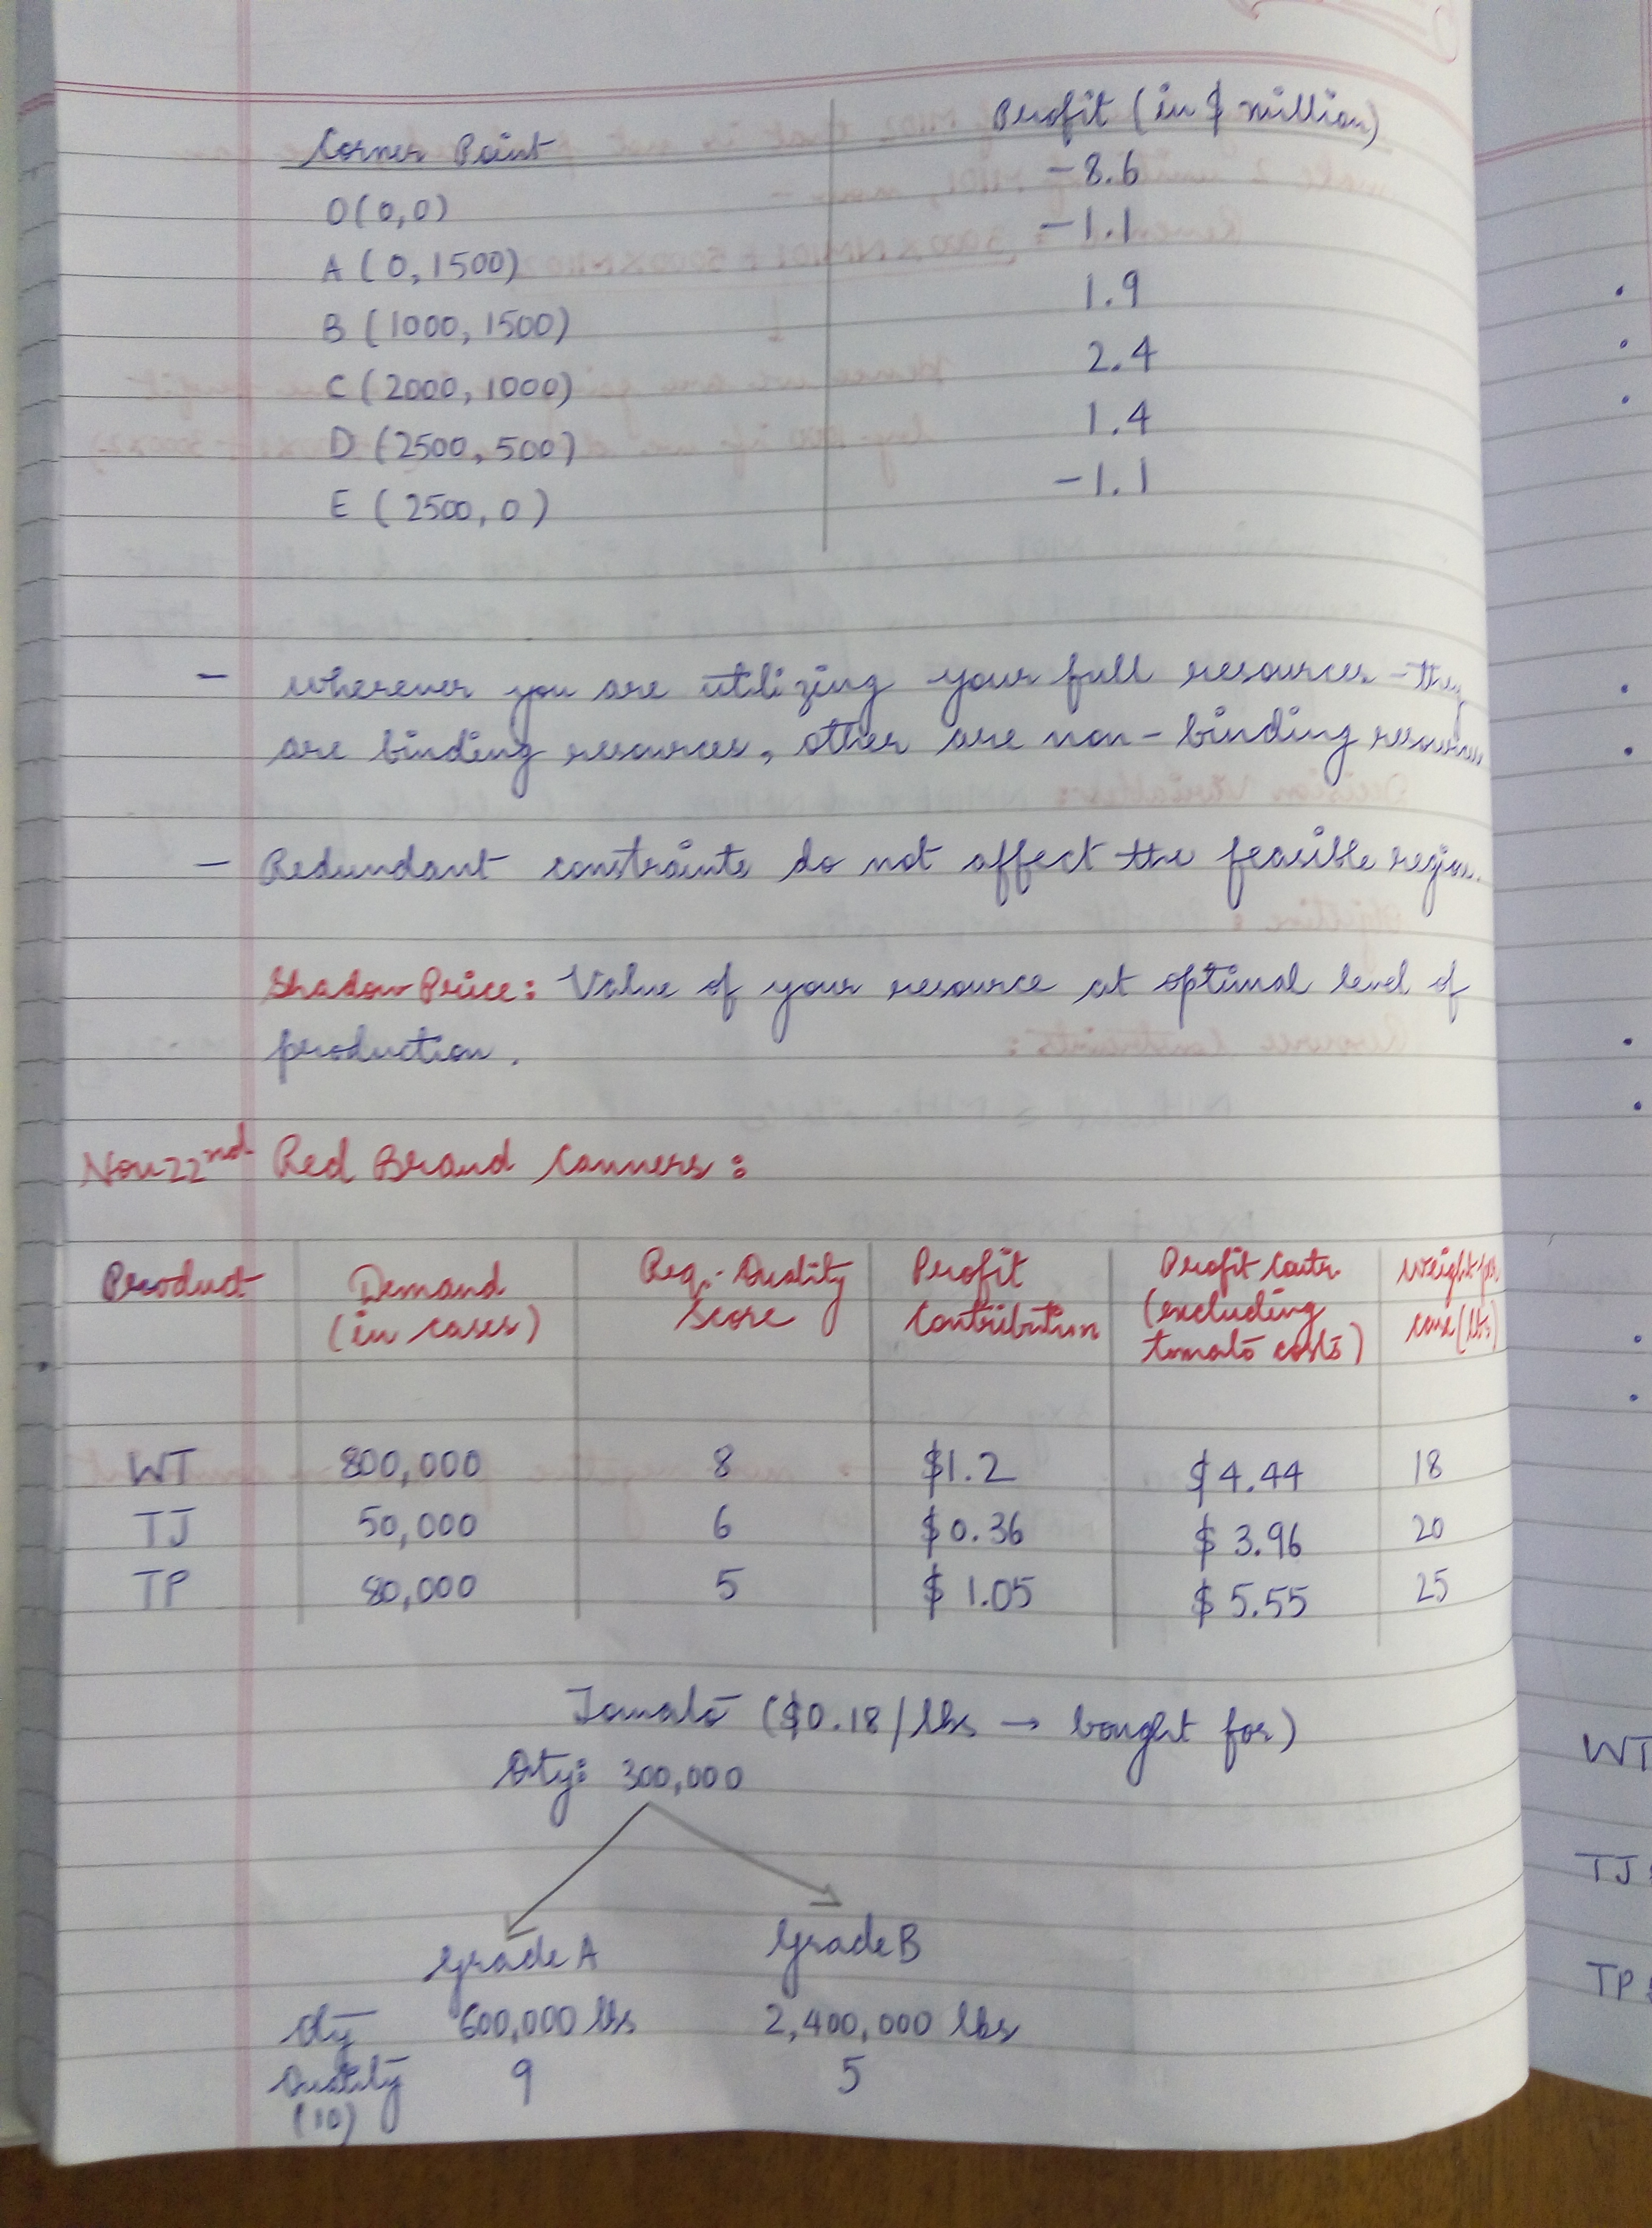 Corner Point | Profit (in $ million)
O(0,0) | -8.6
A (0, 1500) | -1.1
B (1000, 1500) | 1.9
C (2000, 1000) | 2.4
D (2500, 500) | 1.4
E (2500, 0) | -1.1
- wherever you are utilizing your full resources - they
are binding resources, other are non-binding resources
- Redundant constraints do not affect the feasible region.
Shadow Price: Value of your resource at optimal level of
production.
Nov 22nd Red Brand Canners:
Product | Demand (in cases) | Req. Quality Score | Profit Contribution | Profit Contr. (excluding tomato costs) | Weight per case (lbs)
WT | 800,000 | 8 | $1.2 | $4.44 | 18
TJ | 50,000 | 6 | $0.36 | $3.96 | 20
TP | 80,000 | 5 | $1.05 | $5.55 | 25
Tomato ($0.18/lbs → bought for)
Qty: 300,000
Grade A Grade B
Qty 600,000 lbs 2,400,000 lbs
Quality 9 5
(10)
WT
TJ
TP